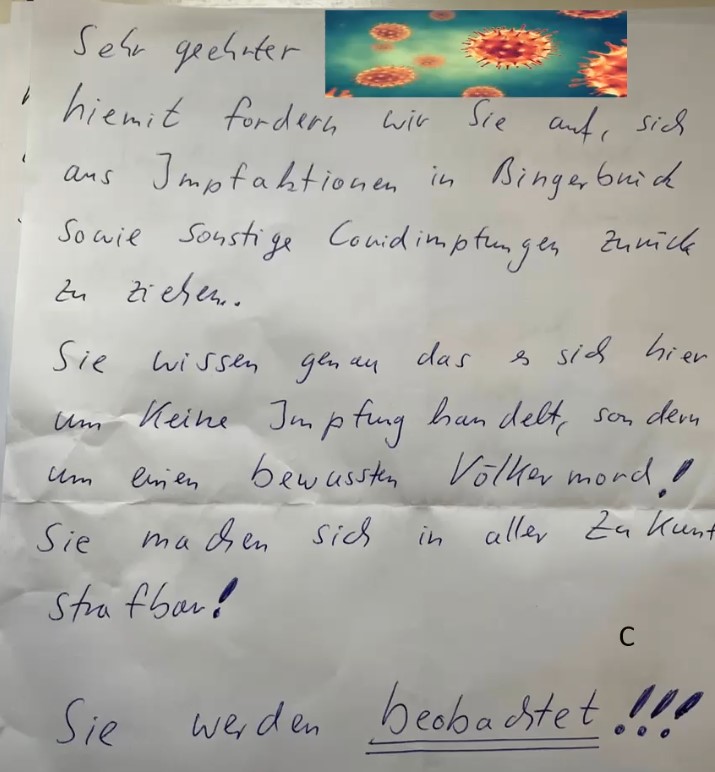 Sehr geehrter
hiemit fordern wir Sie auf, sich
aus Impfaktionen in Bingerbrück
sowie sonstige Covidimpfungen zurück
zu ziehen.
Sie wissen genau das es sich hier
um keine Impfung handelt, sondern
um einen bewussten Völkermord!
Sie machen sich in aller Zukunft
strafbar!
C
Sie werden beobachtet!!!